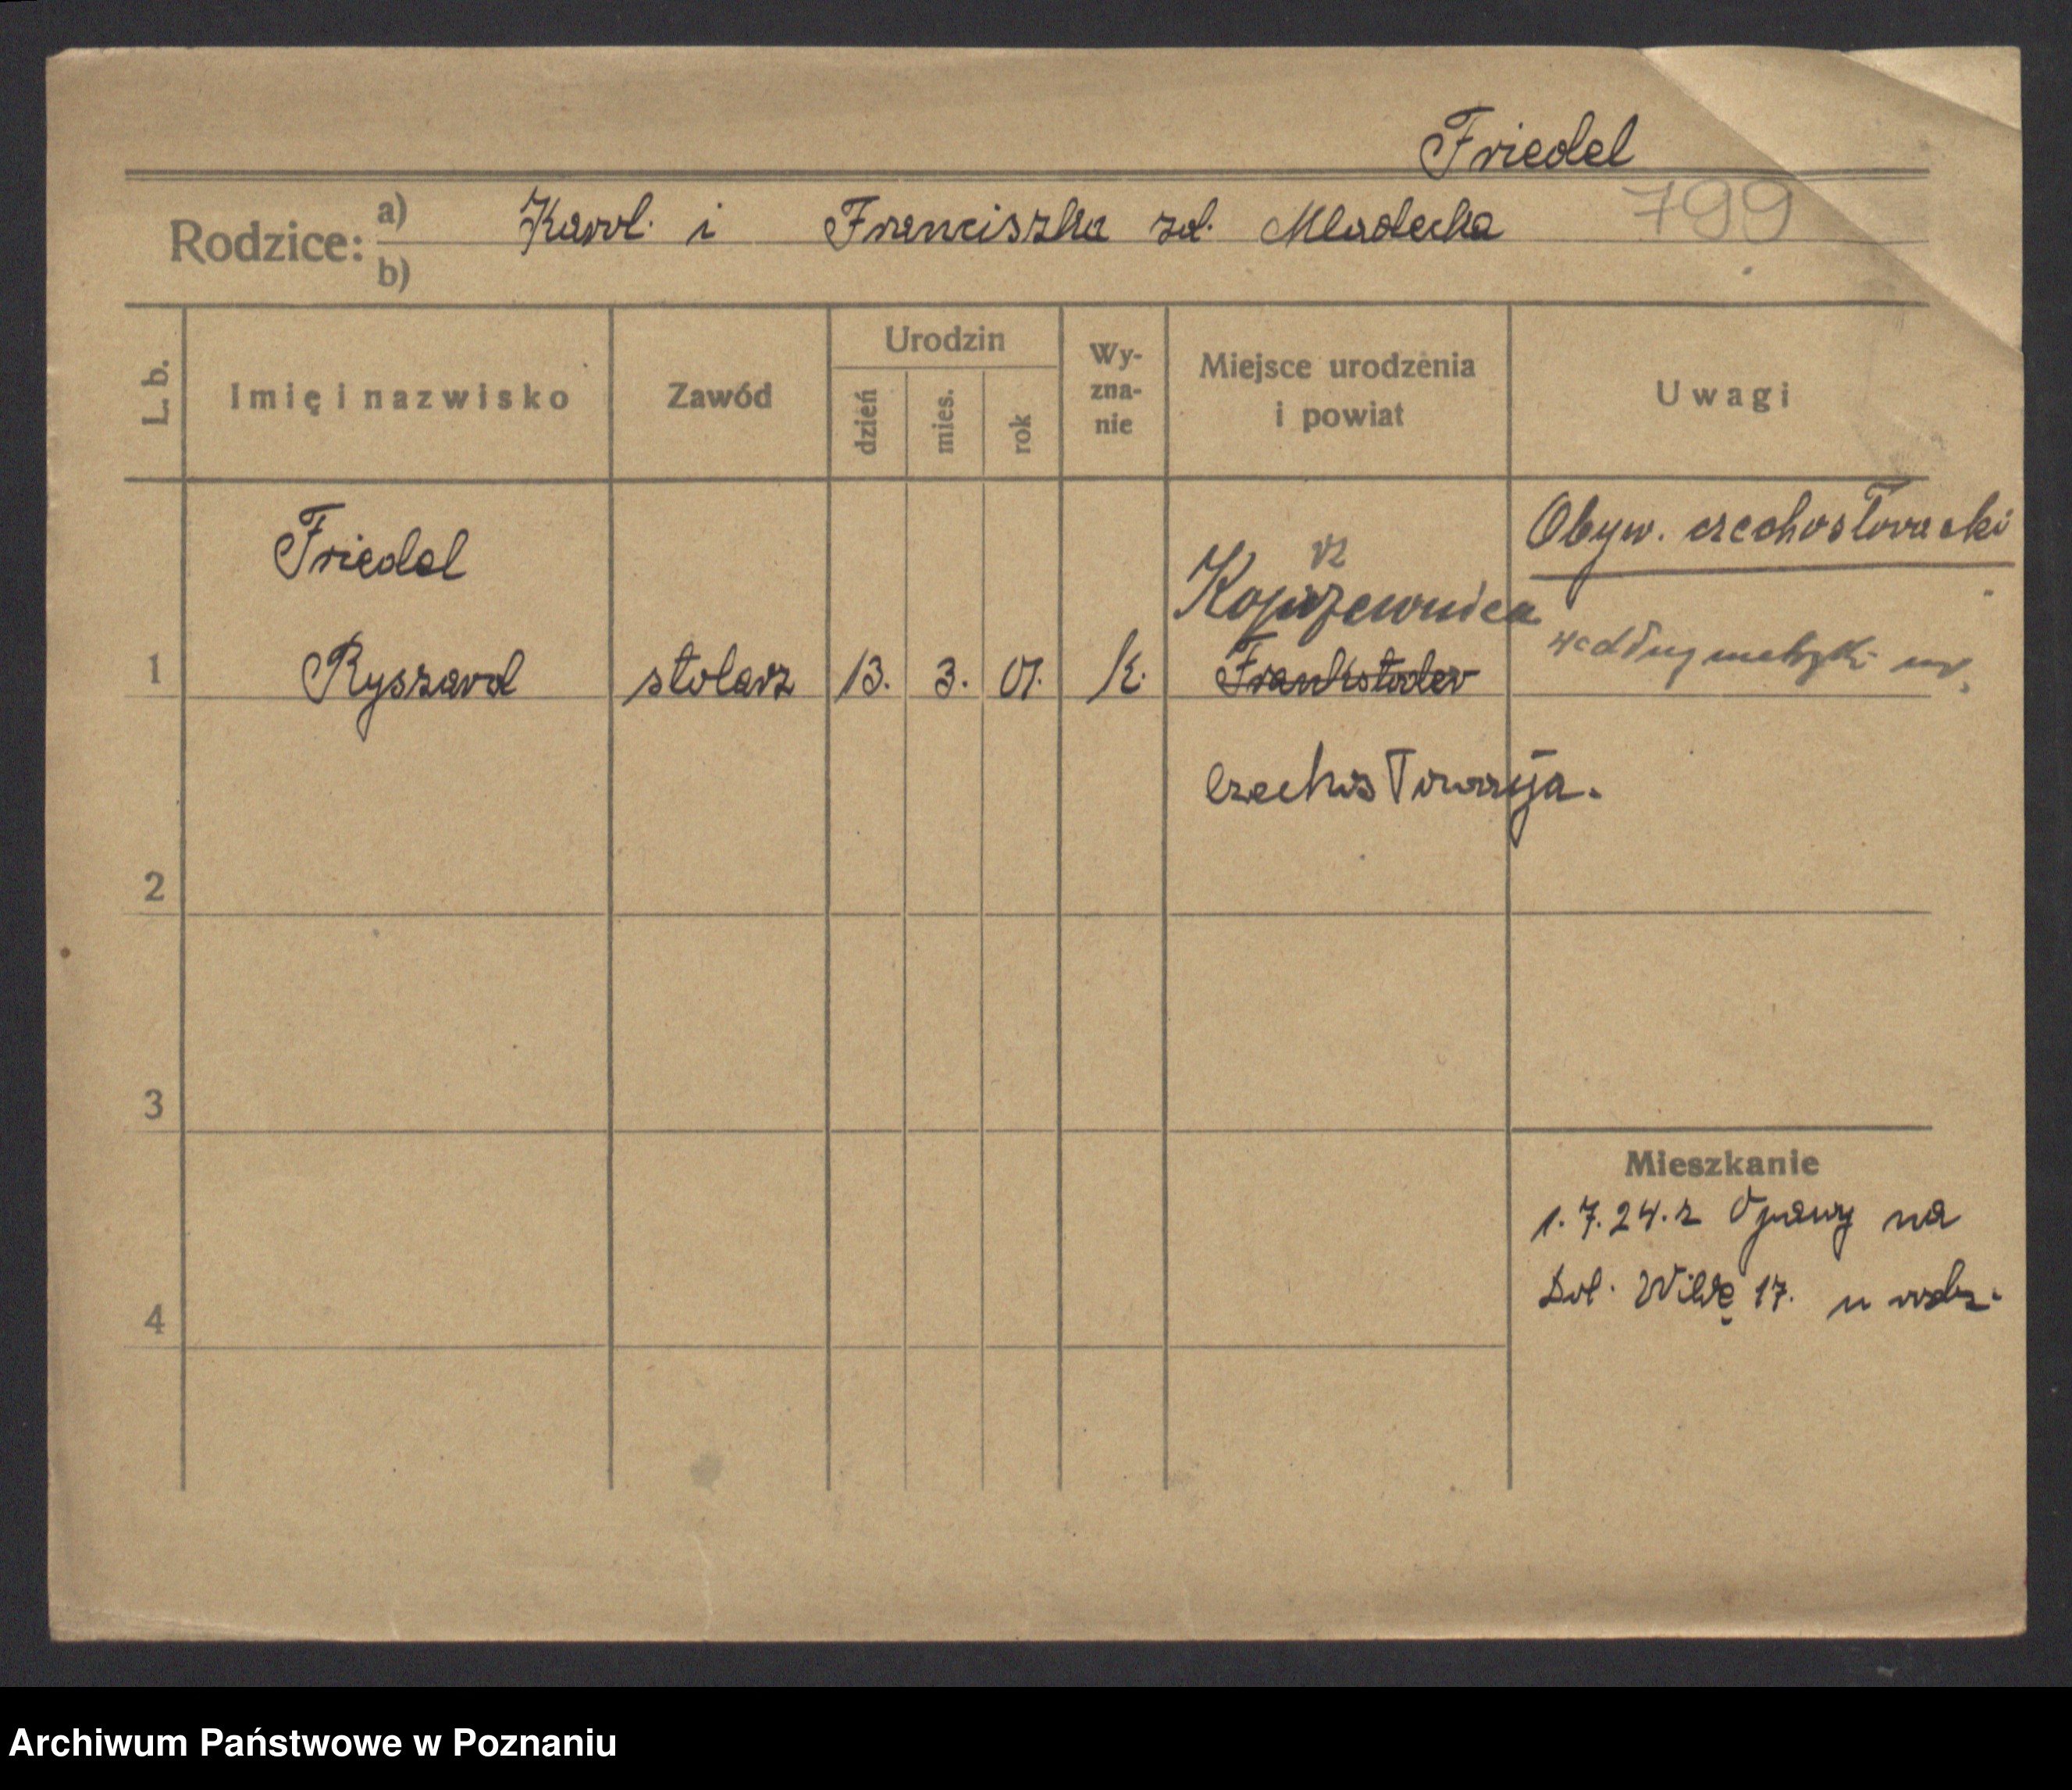 Friedel
Rodzice: a) Karol. i Franciszka zd. Mladecka 799
b)
L. b.
Imię i nazwisko
Zawód
Urodzin
dzień
mies.
rok
Wy-
zna-
nie
Miejsce urodzenia
i powiat
Uwagi
Friedel
Obyw. czechosłowacki
rz
1 Ryszard stolarz 13. 3. 07. k. Frankstadter
według metryki ur.
Czechosłowacja.
2
3
4
Mieszkanie
1.7.24. z Opawy na
Dol. Wildę 17. u rodz.
Archiwum Państwowe w Poznaniu